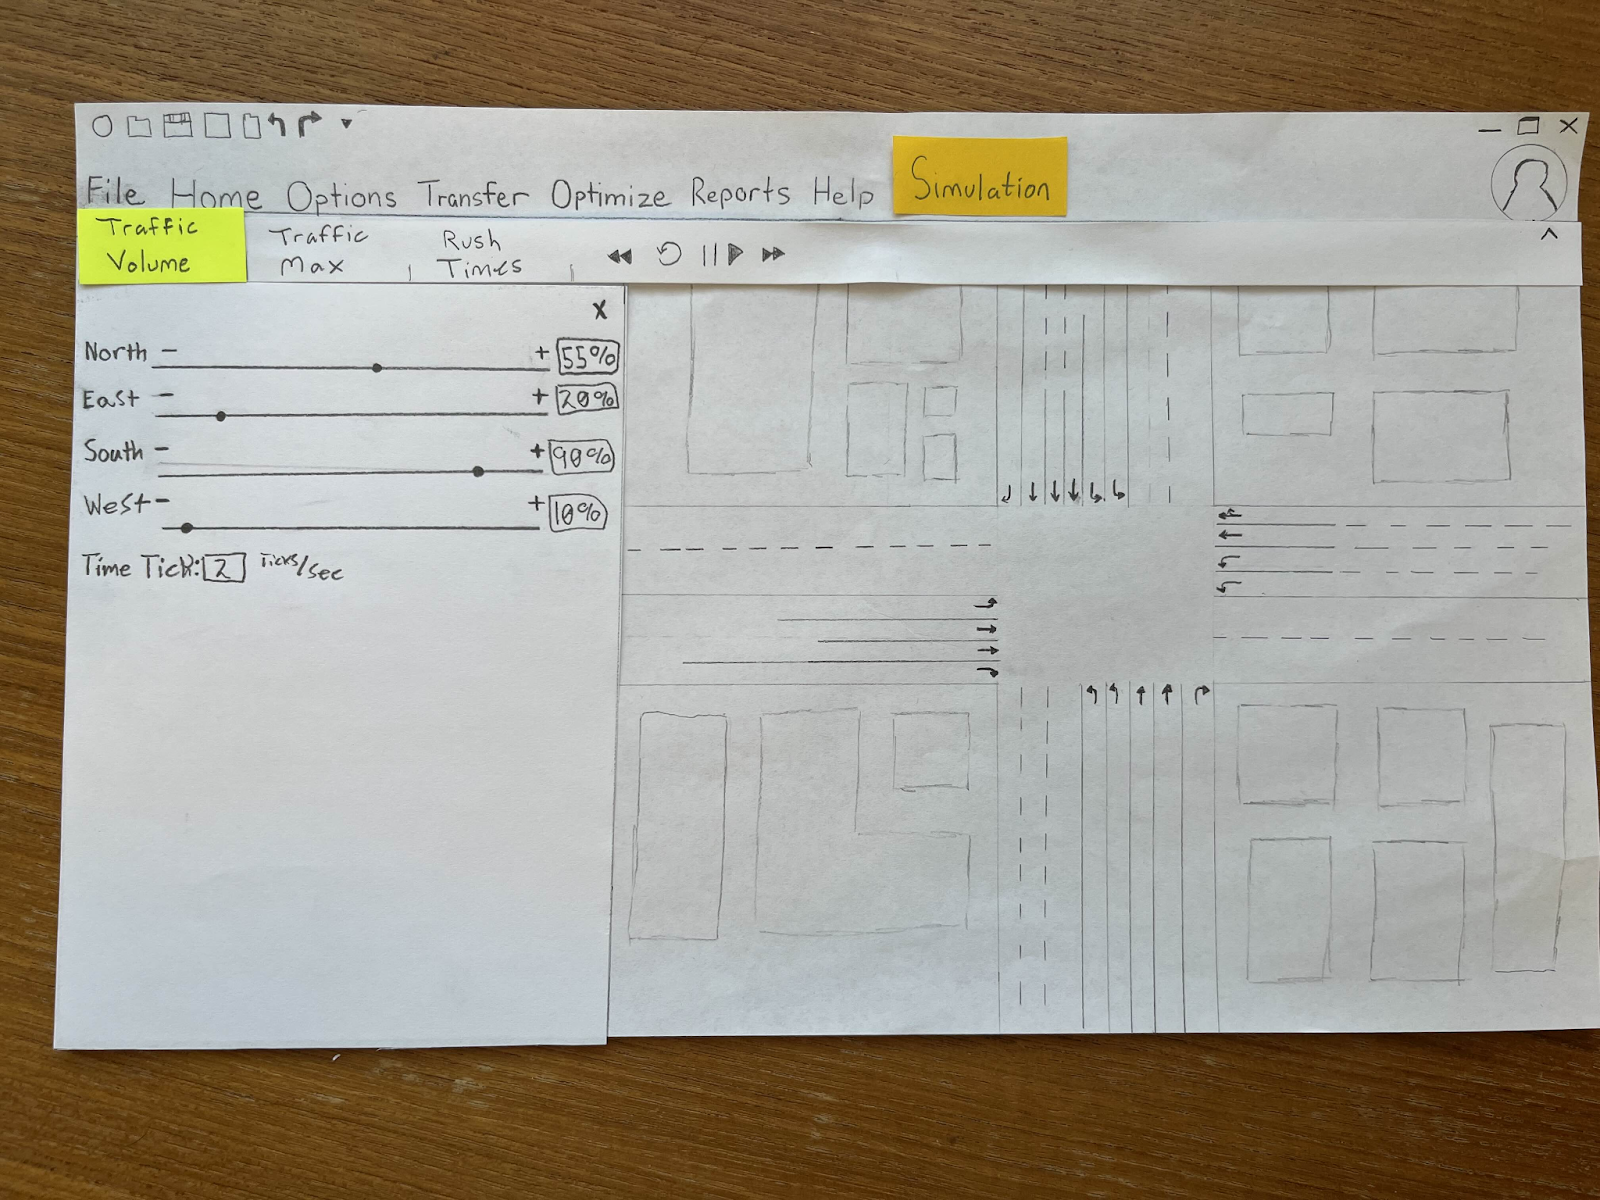 File Home Options Transfer Optimize Reports Help Simulation
Traffic
Volume
Traffic
Max
Rush
Times
X
North - + 55%
East - + 20%
South - + 90%
West - + 10%
Time Tick: 2 Ticks/sec